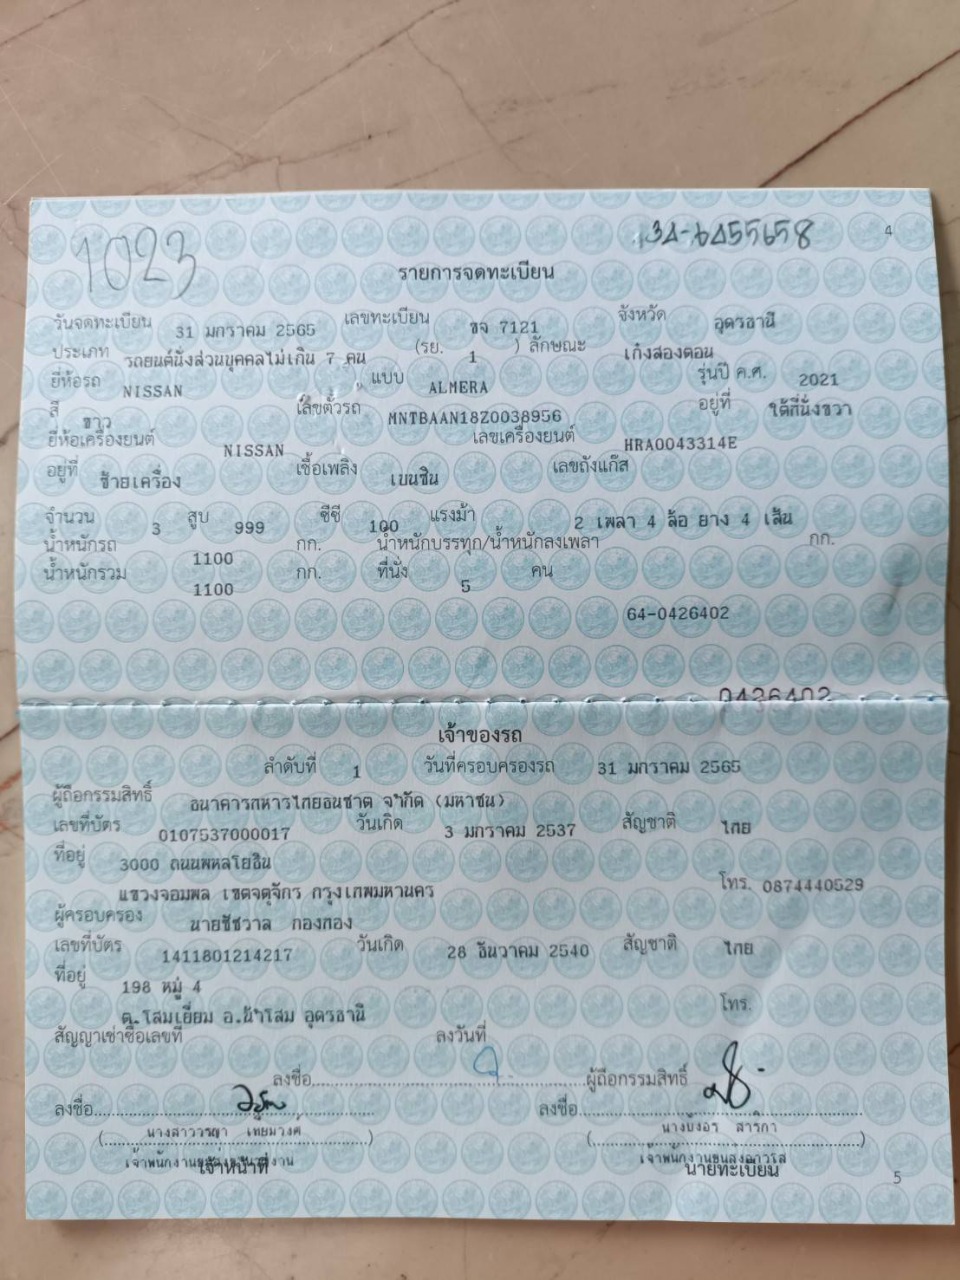 1023
134-6455658
4
รายการจดทะเบียน
วันจดทะเบียน 31 มกราคม 2565 เลขทะเบียน ขจ 7121 จังหวัด อุดรธานี
ประเภท รถยนต์นั่งส่วนบุคคลไม่เกิน 7 คน (รย. 1 ) ลักษณะ เก๋งสองตอน
ยี่ห้อรถ NISSAN แบบ ALMERA รุ่นปี ค.ศ. 2021
สี ขาว เลขตัวรถ MNTBAAN18Z0038956 อยู่ที่ ใต้ที่นั่งขวา
ยี่ห้อเครื่องยนต์ NISSAN เลขเครื่องยนต์ HRA0043314E
อยู่ที่ ซ้ายเครื่อง เชื้อเพลิง เบนซิน เลขถังแก๊ส
จำนวน 3 สูบ 999 ซีซี 100 แรงม้า 2 เพลา 4 ล้อ ยาง 4 เส้น
น้ำหนักรถ 1100 กก. น้ำหนักบรรทุก/น้ำหนักลงเพลา กก.
น้ำหนักรวม 1100 กก. ที่นั่ง 5 คน
64-0426402
0426402
เจ้าของรถ
ลำดับที่ 1 วันที่ครอบครองรถ 31 มกราคม 2565
ผู้ถือกรรมสิทธิ์ ธนาคารทหารไทยธนชาต จำกัด (มหาชน)
เลขที่บัตร 0107537000017 วันเกิด 3 มกราคม 2537 สัญชาติ ไทย
ที่อยู่ 3000 ถนนพหลโยธิน
แขวงจอมพล เขตจตุจักร กรุงเทพมหานคร โทร. 0874440529
ผู้ครอบครอง นายชัชวาล กองทอง
เลขที่บัตร 1411801214217 วันเกิด 28 ธันวาคม 2540 สัญชาติ ไทย
ที่อยู่ 198 หมู่ 4 โทร.
ต.โสมเยี่ยม อ.น้ำโสม อุดรธานี
สัญญาเช่าซื้อเลขที่ ลงวันที่
ลงชื่อ ผู้ถือกรรมสิทธิ์
ลงชื่อ ลงชื่อ
(นางสาววรญา เทียมวงศ์) (นางบังอร สาริกา)
เจ้าหน้าที่ นายทะเบียน
5